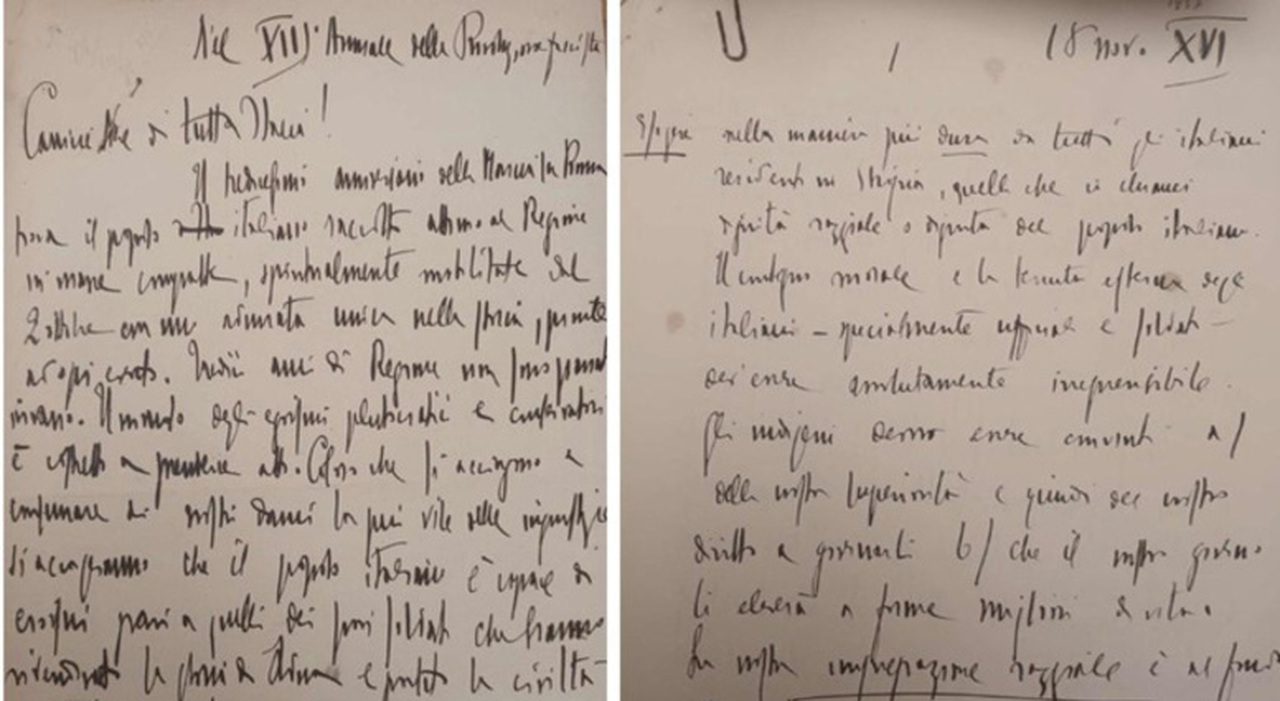 Nel XIII° Annuale della Rivoluzione fascista
Camicie Nere di tutta Italia!
Il tredicesimo anniversario della Marcia su Roma
trova il popolo italiano raccolto attorno al Regime
in masse compatte, spiritualmente mobilitate dal
2 ottobre con una adunata unica nella storia, pronte
ad ogni evento. Tredici anni di Regime non sono passati
invano. Il mondo degli egoismi plutocratici e conservatori
è costretto a prenderne atto. Coloro che si accingono a
consumare ai nostri danni la più vile delle ingiustizie
si accorgeranno che il popolo italiano è capace di
eroismi pari a quelli dei suoi soldati che hanno
rivendicato la gloria di Adua e portato la civiltà
1
18 nov. XVI
Esigere nella maniera più dura da tutti gli italiani
residenti in, quella che io chiamai
dignità razziale o dignità del popolo italiano.
Il contegno morale e la tenuta esterna degli
italiani – specialmente ufficiali e soldati –
dev'essere assolutamente irreprensibile.
Gli indigeni devono essere convinti a/
della nostra superiorità e quindi del nostro
diritto a governarli b/ che il nostro governo
li eleverà a forme migliori di vita.
La nostra impreparazione razziale è al fondo